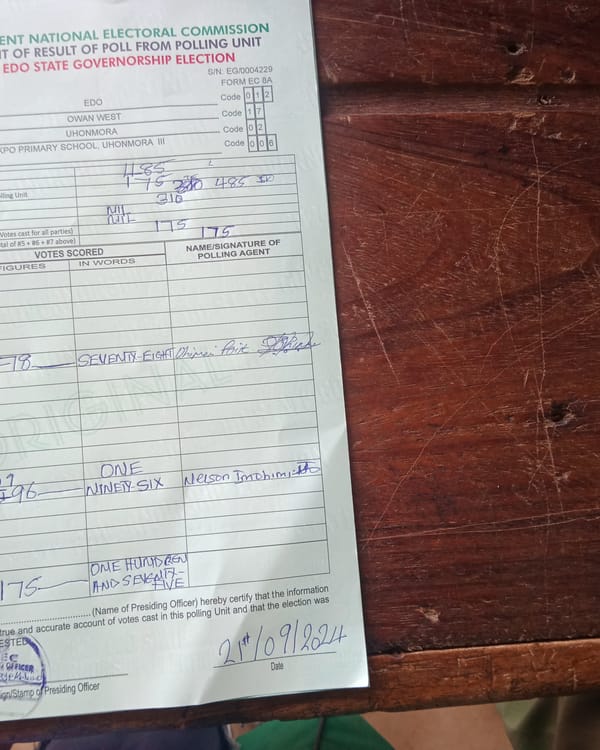 ENT NATIONAL ELECTORAL COMMISSION
T OF RESULT OF POLL FROM POLLING UNIT
EDO STATE GOVERNORSHIP ELECTION
S/N: EG/0004229
FORM EC 8A
EDO Code 0 1 2
OWAN WEST Code 1 7
UHONMORA Code 0 2
KPO PRIMARY SCHOOL, UHONMORA III Code 0 0 6
485
lling Unit 175 485
310
NIL
Votes cast for all parties) NIL 175
tal of #5 + #6 + #7 above) 175
VOTES SCORED NAME/SIGNATURE OF POLLING AGENT
FIGURES IN WORDS
78 SEVENTY-EIGHT
ORIGINAL
1 ONE
96 NINETY-SIX Nelson Imohimi
175 ONE HUNDREN AND SEVENTY-FIVE
(Name of Presiding Officer) hereby certify that the information
true and accurate account of votes cast in this polling Unit and that the election was
ESTED
OFFICER
21st/09/2024
Date
ign/Stamp of Presiding Officer